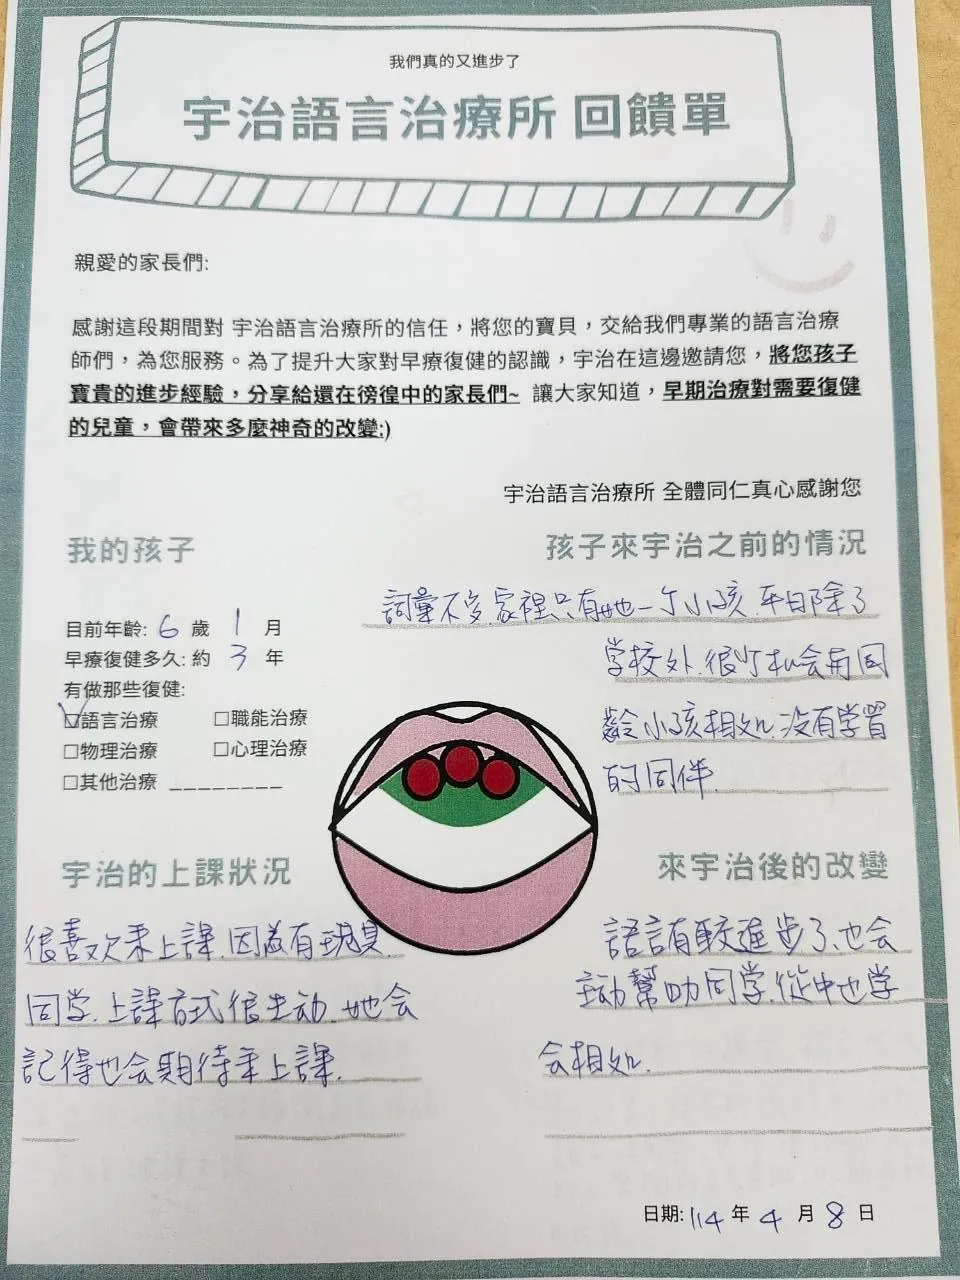 我們真的又進步了
宇治語言治療所 回饋單
親愛的家長們:
感謝這段期間對 宇治語言治療所的信任，將您的寶貝，交給我們專業的語言治療
師們，為您服務。為了提升大家對早療復健的認識，宇治在這邊邀請您，將您孩子
寶貴的進步經驗，分享給還在徬徨中的家長們~ 讓大家知道，早期治療對需要復健
的兒童，會帶來多麼神奇的改變:)
宇治語言治療所 全體同仁真心感謝您
我的孩子
目前年齡: 6 歲 1 月
早療復健多久: 約 3 年
有做那些復健:
☑語言治療 □職能治療
□物理治療 □心理治療
□其他治療 _________
孩子來宇治之前的情況
詞彙不多.家裡只有她一个小孩.平日除了
学校外.很少机会再同
齡小孩相处.没有学習
的同伴.
宇治的上課狀況
很喜欢来上課.因為有玩具.
同学.上課方式很生动.她会
記得也会期待来上課.
來宇治後的改變
語言有較進步了.也会
主动幫助同学.從中也学
会相处.
日期: 114 年 4 月 8 日